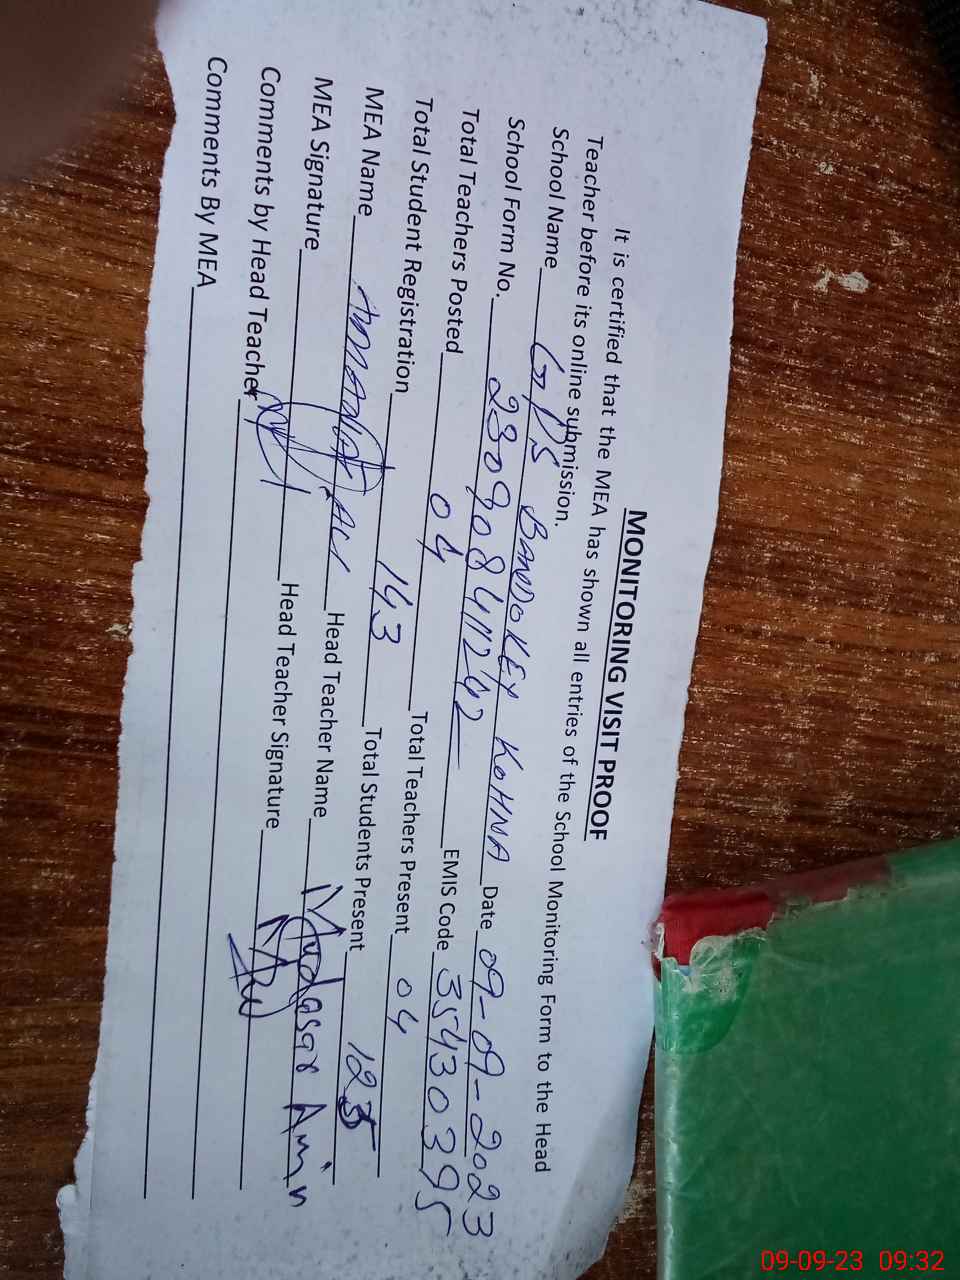 MONITORING VISIT PROOF
It is certified that the MEA has shown all entries of the School Monitoring Form to the Head
Teacher before its online submission.
School Name GPS BANDOKEY KOHNA Date 09-09-2023
School Form No. 23090841242 EMIS Code 35430395
Total Teachers Posted 04 Total Teachers Present 04
Total Student Registration 143 Total Students Present 125
MEA Name ALI Head Teacher Name Mudasar Amin
MEA Signature Head Teacher Signature
Comments by Head Teacher
Comments By MEA
09-09-23 09:32